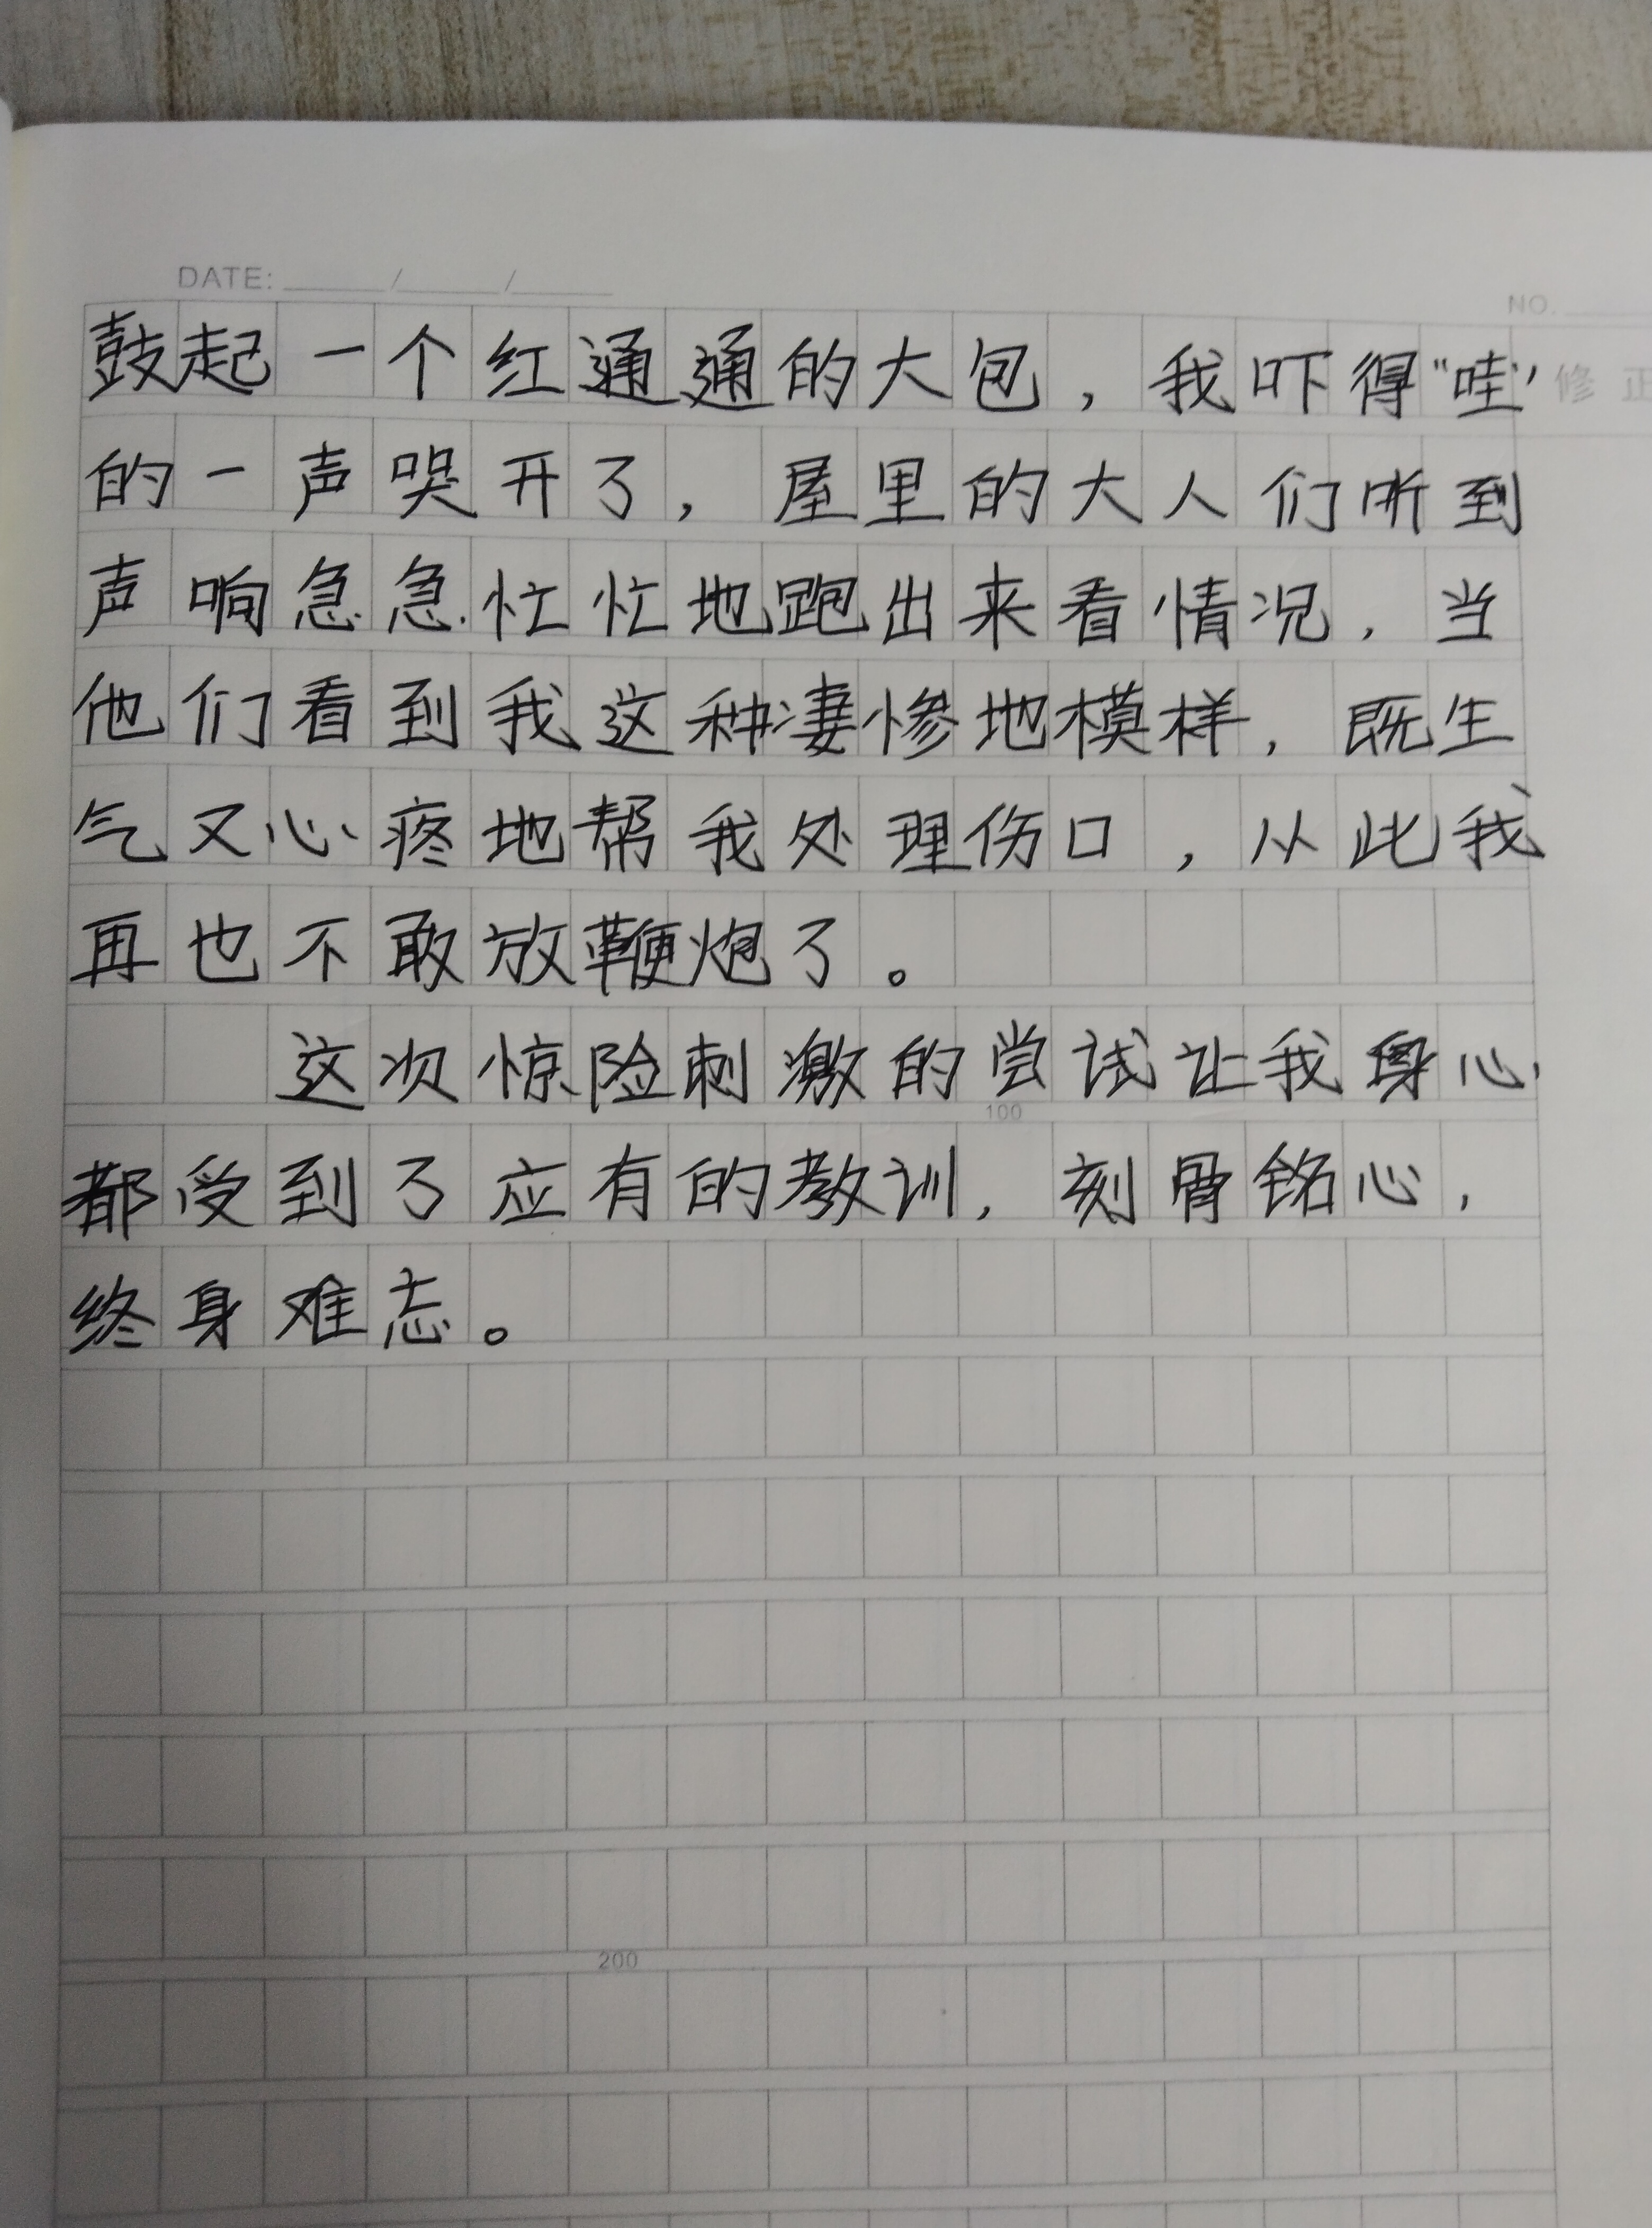 DATE: ____/____/____
NO.
修 正
鼓起一个红通通的大包，我吓得“哇”
的一声哭开了，屋里的大人们听到
声响急急忙忙地跑出来看情况，当
他们看到我这种凄惨地模样，既生
气又心疼地帮我处理伤口，从此我
再也不敢放鞭炮了。
这次惊险刺激的尝试让我身心
100
都受到了应有的教训，刻骨铭心，
终身难忘。
200